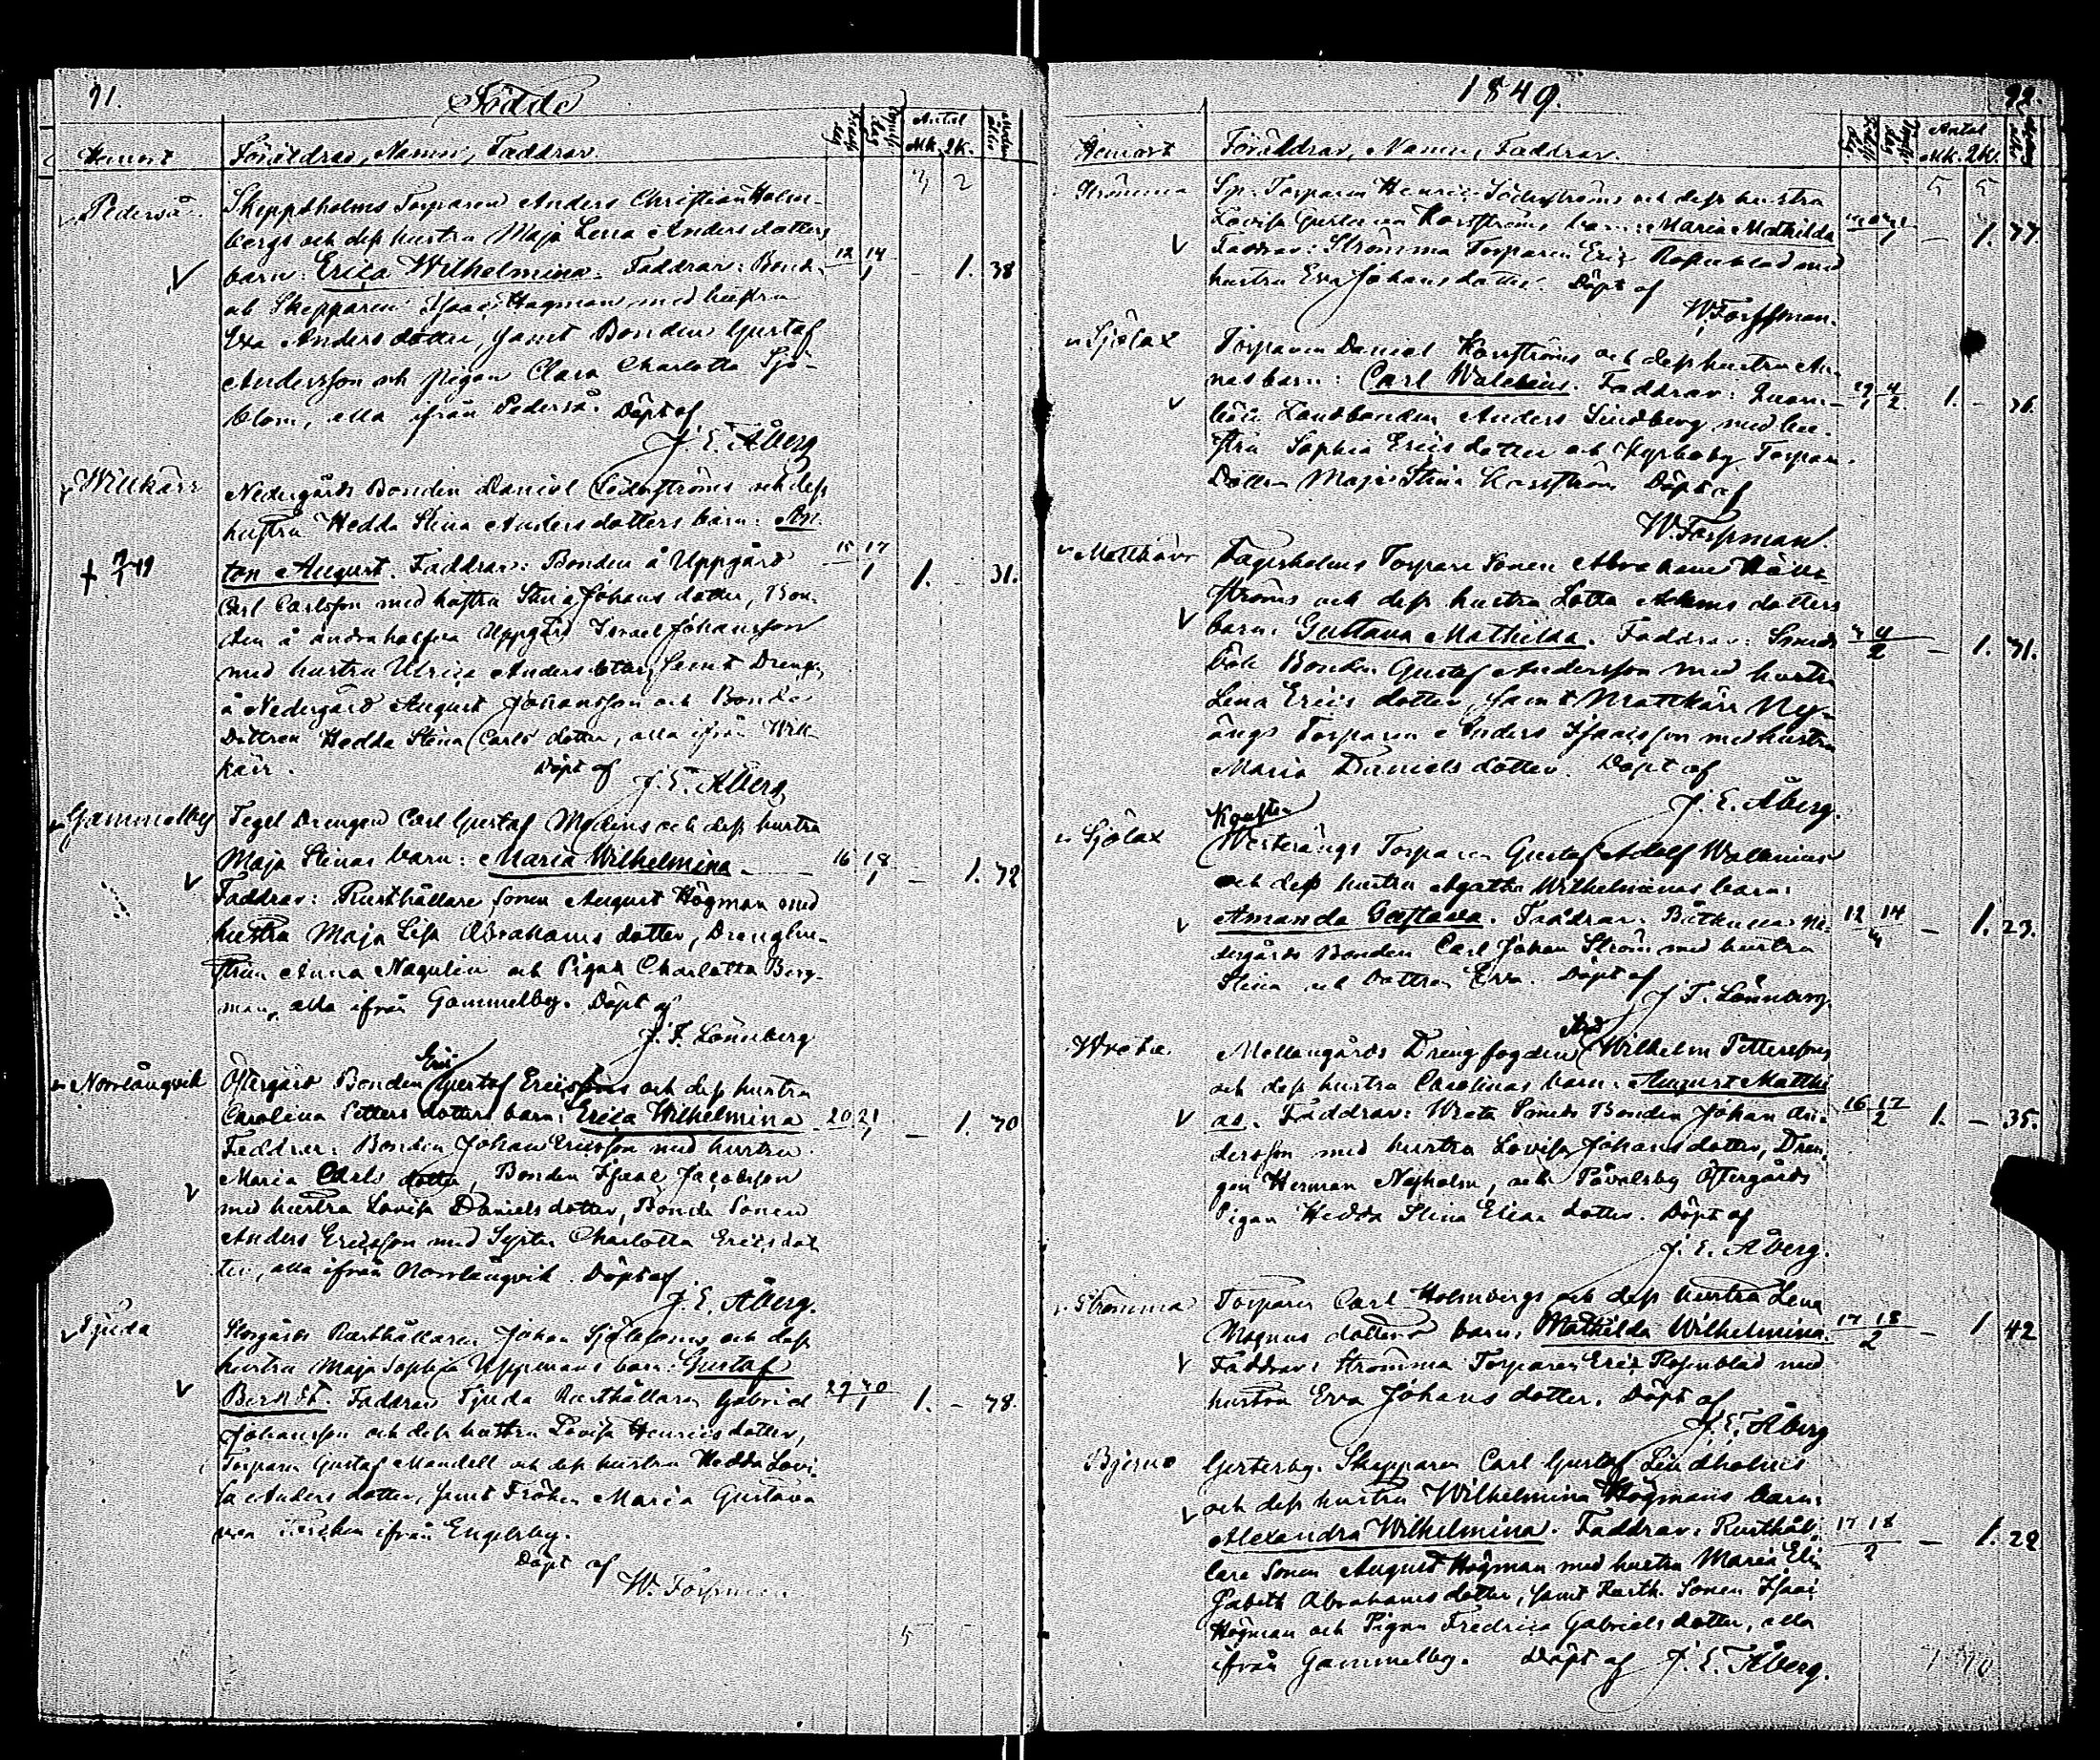 91.
Födde
Hemort
Föräldrar, Namn, Faddrar.
Födelse dag
Antal
Mk. QK.
3 2
Pederså
Skeppsholms Torparen Anders Christian Holm-
bergs och dess hustru Maja Lena Anders dotters
barn: Erica Wilhelmina. Faddrar: Bond.
12 14
1 - 1. 38
och Skepparen Isaac Hagman med hustru
Eva Anders dotter, samt Bonden Gustaf
Andersson och pigan Clara Charlotta Sjö-
blom, alla ifrån Pederså. Döpt af
J. E. Åberg
Willkärr
Nedergårds Bonden Daniel Söderströms och dess
hustru Hedda Stina Anders dotters barn: An-
ton August. Faddrar: Bonden å Uppgård
15 17
1 1. - 31.
Carl Carlsson med hustru Stina Johans dotter, Bon-
den å andra halfva Uppgård Israel Johansson
med hustru Ulrica Anders dotter, samt Dreng.
å Nedergård August Johansson och Bonde
Dottren Hedda Stina Carls dotter, alla ifrån Will-
kärr. Döpt af
J. E. Åberg
Gammelby
Tegel Drengen Carl Gustaf Modins och dess hustru
Maja Stinas barn: Maria Wilhelmina
16 18
1 - 1. 42
Faddrar: Rusthållare Sonen August Högman med
hustru Maja Lisa Abrahams dotter, Drenghu-
strun Anna Nagulin och Pigan Charlotta Berg-
man, alla ifrån Gammelby. Döpt af
J. F. Lönnberg
Norrlångvik
Eric
Östergård Bonden Gustaf Ericssons och dess hustru
Carolina Petters dotters barn: Erica Wilhelmina
20 21
1 - 1. 40
Faddrar: Bonden Johan Ericsson med hustru
Maria Carls dotter, Bonden Isaac Jacobsson
med hustru Lovisa Daniels dotter, Bonde Sonen
Anders Ericsson med Syster Charlotta Erics dot-
ter, alla ifrån Norrlångvik. Döpt af
J. E. Åberg.
Tjuda
Storgårds Rusthållaren Johan Sjöbloms och dess
hustru Maja Sophia Uppmans barn: Gustaf
Berndt. Faddrar Tjuda Rusthållaren Gabriel
29 30
1 1. - 48.
Johansson och dess hustru Lovisa Henrics dotter,
Torparen Gustaf Mandell och dess hustru Hedda Lovi-
sa Anders dotter, samt Fröken Maria Gustava
ifrån Engelsby.
Döpt af
W. Forssman
5
1849.
Hemort
Föräldrar, Namn, Faddrar.
Antal
Mk. QK.
5 5
Strömma
Sp. Torparen Henric Söderströms och dess hustru
Lovisa Karströms barn: Maria Mathilda
1 - 1. 37.
Faddrar: Strömma Torparen Eric Rosenblad med
hustru Eva Johans dotter. Döpt af
W. Forssman.
Sjölax
Torparen Daniel Karströms och dess hustru An-
nas barn: Carl Walerius. Faddrar:
29 4
1 2. 1. - 36.
Landbonden Anders Lindberg med hu-
stru Sophia Erics dotter och Kyrkoby Torpare-
Dottren Maja Stina Karström Döpt af
W. Forssman.
Mattkärr
Fagerholms Torpare Sonen Abraham
ströms och dess hustru Lotta Adams dotters
barn: Gustava Mathilda. Faddrar: Smeds
4
2 - 1. 31.
böle Bonden Gustaf Andersson med hustru
Lena Erics dotter, samt Mattkärr Ny-
ängs Torparen Anders Isaacsson med hustru
Maria Daniels dotter. Döpt af
J. E. Åberg.
Sjölax
Westerängs Torparen Gustaf Adolf Wallenius
och dess hustru Agatha Wilhelminas barn:
Amanda Gustava. Faddrar: Båtkulla Ne-
12 14
- 1. 23.
dergårds Bonden Carl Johan Ström med hustru
Stina och Dottren Eva. Döpt af
J. F. Lönnberg.
Wreta
And
Mellangårds Drengfogden Wilhelm Petterssons
och dess hustru Carolinas barn: August Matthi
as. Faddrar: Wreta Smeds Bonden Johan An-
16 17
2 1. - 35.
dersson med hustru Lovisa Johans dotter, Dren-
gen Herman Nyholm, och Påvalsby Östergårds
Pigan Hedda Stina Elias dotter. Döpt af
J. E. Åberg.
Strömma
Torparen Carl Holmbergs och dess hustru Lena
Magnus dotters barn: Mathilda Wilhelmina.
17 18
2 - 1 42
Faddrar: Strömma Torparen Eric Rosenblad med
hustru Eva Johans dotter. Döpt af
J. E. Åberg
Bjerno
Gerterby. Skepparen Carl Gustaf Lindholms
och dess hustru Wilhelmina Högmans barn:
Alexandra Wilhelmina. Faddrar: Rusthål-
17 18
2 - 1. 22
lare Sonen August Högman med hustru Maria Eli-
sabeth Abrahams dotter, samt Rusth. Sonen Isaac
Högman och Pigan Fredrica Gabriels dotter, alla
ifrån Gammelby. Döpt af J. E. Åberg.
7 10